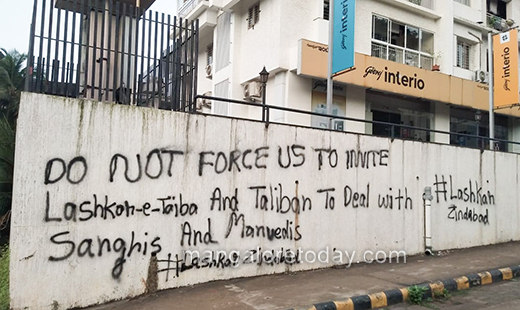 Godrej interio
Godrej interio
interio
DO NOT FORCE US TO INVITE
Lashkar-e-Taiba And Taliban To Deal with
Sanghis And Manvedis
#Lashkar
Zindabad
#Lashkar
mangaloretoday.com